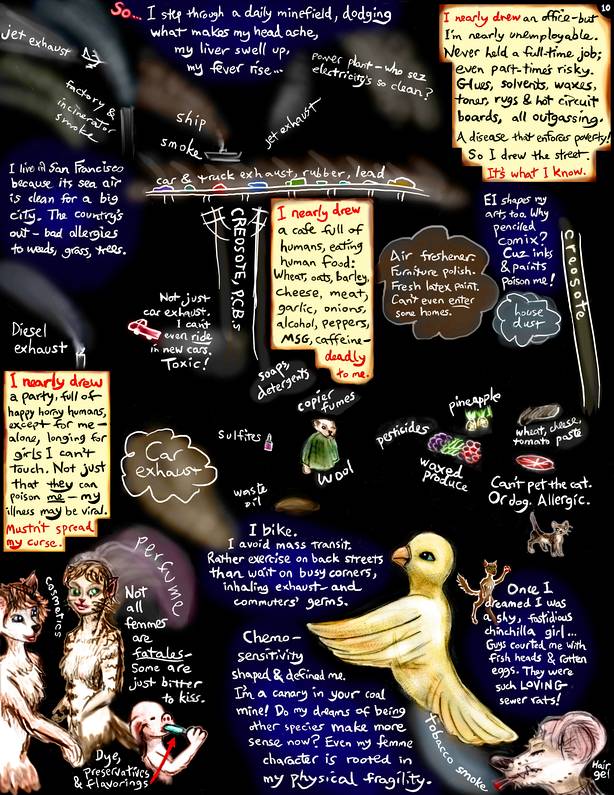 10
So... I step through a daily minefield, dodging
what makes my head ache,
my liver swell up,
my fever rise...
jet exhaust
factory &
incinerator
smoke
ship
smoke
jet exhaust
Power plant - who sez
electricity's so clean?
I nearly drew an office - but
I'm nearly unemployable.
Never held a full-time job;
even part-time's risky.
Glues, solvents, waxes,
toner, rugs & hot circuit
boards, all outgassing.
A disease that enforces poverty!
So I drew the street.
It's what I know.
car & truck exhaust, rubber, lead
I live in San Francisco
because its sea air
is clean for a big
city. The country's
out - bad allergies
to weeds, grass, trees.
CREOSOTE, PCB's
Not just
car exhaust.
I can't
even ride
in new cars.
Toxic!
I nearly drew
a cafe full of
humans, eating
human food:
Wheat, oats, barley,
cheese, meat,
garlic, onions,
alcohol, peppers,
MSG, caffeine -
deadly
to me.
Air freshener.
Furniture polish.
Fresh latex paint.
Can't even enter
some homes.
EI shapes my
art, too. Why
penciled
comix?
Cuz inks
& paints
poison me!
house
dust
Creosote
Diesel
exhaust
I nearly drew
a party, full of
happy horny humans,
except for me -
alone, longing for
girls I can't
touch. Not just
that they can
poison me - my
illness may be viral.
Mustn't spread
my curse.
Car
exhaust
soaps,
detergents
copier
fumes
Sulfites
Wool
waste
oil
pineapple
pesticides
waxed
produce
wheat, cheese,
tomato paste
Can't pet the cat.
Or dog. Allergic.
I bike.
I avoid mass transit.
Rather exercise on back streets
than wait on busy corners,
inhaling exhaust - and
commuters' germs.
Perfume
cosmetics
Not
all
femmes
are
fatales -
Some are
just bitter
to kiss.
Dye,
preservatives
& flavorings
Chemo-
sensitivity
shaped & defined me.
I'm a canary in your coal
mine! Do my dreams of being
other species make more
sense now? Even my femme
character is rooted in
my physical fragility.
Once I
dreamed I was
a shy, fastidious
chinchilla girl...
Guys courted me with
fish heads & rotten
eggs. They were
such LOVING
sewer rats!
tobacco smoke
Hair
gel